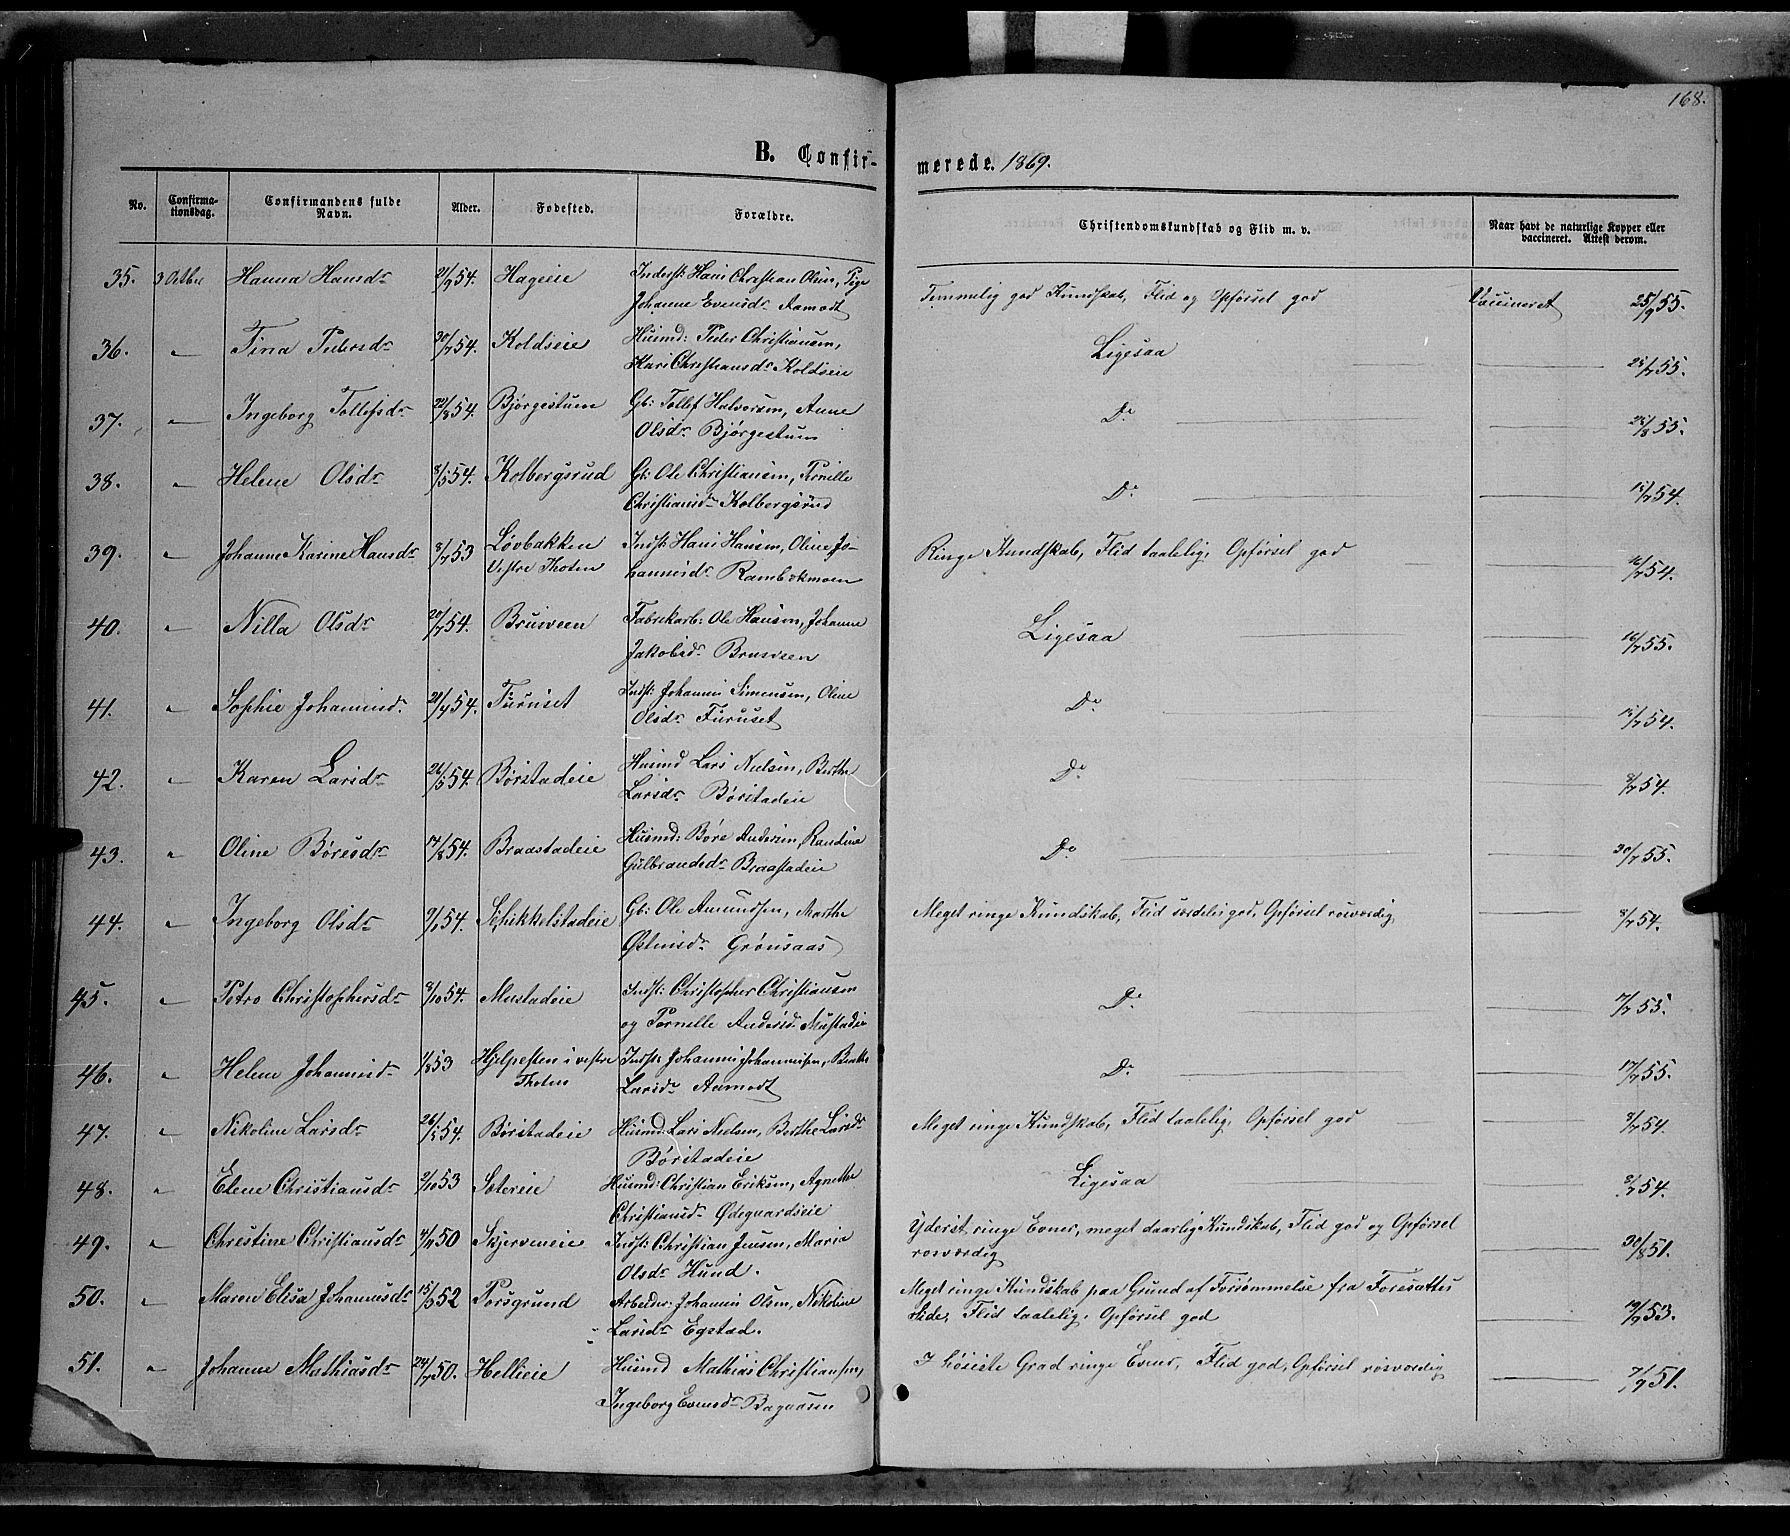 168.
B. Confir-merede. 1869.
No. Confirmationsdag. Confirmandens fulde Navn. Alder. Fødested. Forældre. Christendomskundskab og Flid m. v. Naar havt de naturlige Kopper eller vaccineret. Attest derom.
35. 3 Octber Hanna Hansdr 21/9 54. Hageeie Inderst: Hans Christian Olsen, Pige Temmelig god Kundskab, Flid og Opførsel god Vaccineret 25/9 55.
Johanne Evensdr Aamodt
36. " Tina Pedersdr 30/7 54. Koldseie Husmd: Peder Christiansen, Ligesaa 25/7 55.
Kari Christiansdr Koldseie
37. " Ingeborg Tollefsdr 22/8 54. Bjørgestuen Gb: Tollef Halvorsen, Anne Do 25/8 55.
Olsdr Bjørgestuen
38. " Helene Olsdr 8/5 54. Kolbergsrud Gb: Ole Christiansen, Pernille Do 15/7 54.
Christiansdr Kolbergsrud
39. " Johanne Karine Hansdr 8/7 53 Løvbakken Indst: Hans Hansen, Oline Jo- Ringe Kundskab, Flid taalelig, Opførsel god 16/7 54.
Vestre Thoten hannesdr Rambekmoen
40. " Nilla Olsdr 20/7 54. Brusveen Fabrikarb: Ole Hansen, Johanne Ligesaa 16/7 55.
Jakobsdr Brusveen
41. " Sophie Johannesd. 21/4 54. Furuset Indst: Johannes Simensen, Oline Do 15/7 54.
Olsdr Furuset
42. " Karen Larsdr 26/5 54. Børstadeie Husmd Lars Nielsen, Berthe Do 8/7 54.
Larsdr Børstadeie
43. " Oline Børesdr 17/8 54. Braastadeie Husmd: Børe Andersen, Randine Do 30/7 55.
Gulbrandsdr Braastadeie
44. " Ingeborg Olsdr 9/1 54. Schikkelstadeie Gb: Ole Amundsen, Marthe Meget ringe Kundskab, Flid særdeles god, Opførsel rosværdig, 8/7 54.
Østensdr Grønsaas
45. " Petro Christophersdr 8/10 54. Mustadeie Indst: Christopher Christiansen Do 17/7 55.
og Pernelle Andersd. Mustadeie
46. " Helene Johannesd. 1/8 53 Hjelpesten i vestre Indst: Johannes Johannessen, Do 17/7 55.
Thoten Larsdr Aamodt
47. " Nikoline Larsdr 26/5 54. Børstadeie Husmd: Lars Nielsen, Berthe Larsdr Meget ringe Kundskab, Flid taalelig, Opførsel god 8/7 54.
Børstadeie
48. " Elene Christiansdr 2/10 53 Sætereie Husmd: Christian Eriksen, Agnethe Ligesaa 8/7 54.
Christiansd. Ødegaardseie
49. " Chrestine Christiansdr 4/11 50 Skjerveneie Indst: Christian Jensen, Maria Yderst ringe Evner, meget daarlig Kundskab, Flid god og Opførsel 30/8 51.
Olsdr Hund. rosværdig
50. " Maren Elisa Johannesdr 15/3 52 Porsgrund Arbeider: Johannes Olsen, Nikoline Meget ringe Kundskab paa Grund af Forsømmelse fra Foresattes 19/9 53.
Larsdr Egstad. Side, Flid taalelig, Opførsel god
51. " Johanne Mathiasdr 24/7 50. Hellieie Husmd Mathias Christiansen, I høieste Grad ringe Evner, Flid god, Opførsel rosværdig 7/9 51.
Ingeborg Evensdr Bagaasen